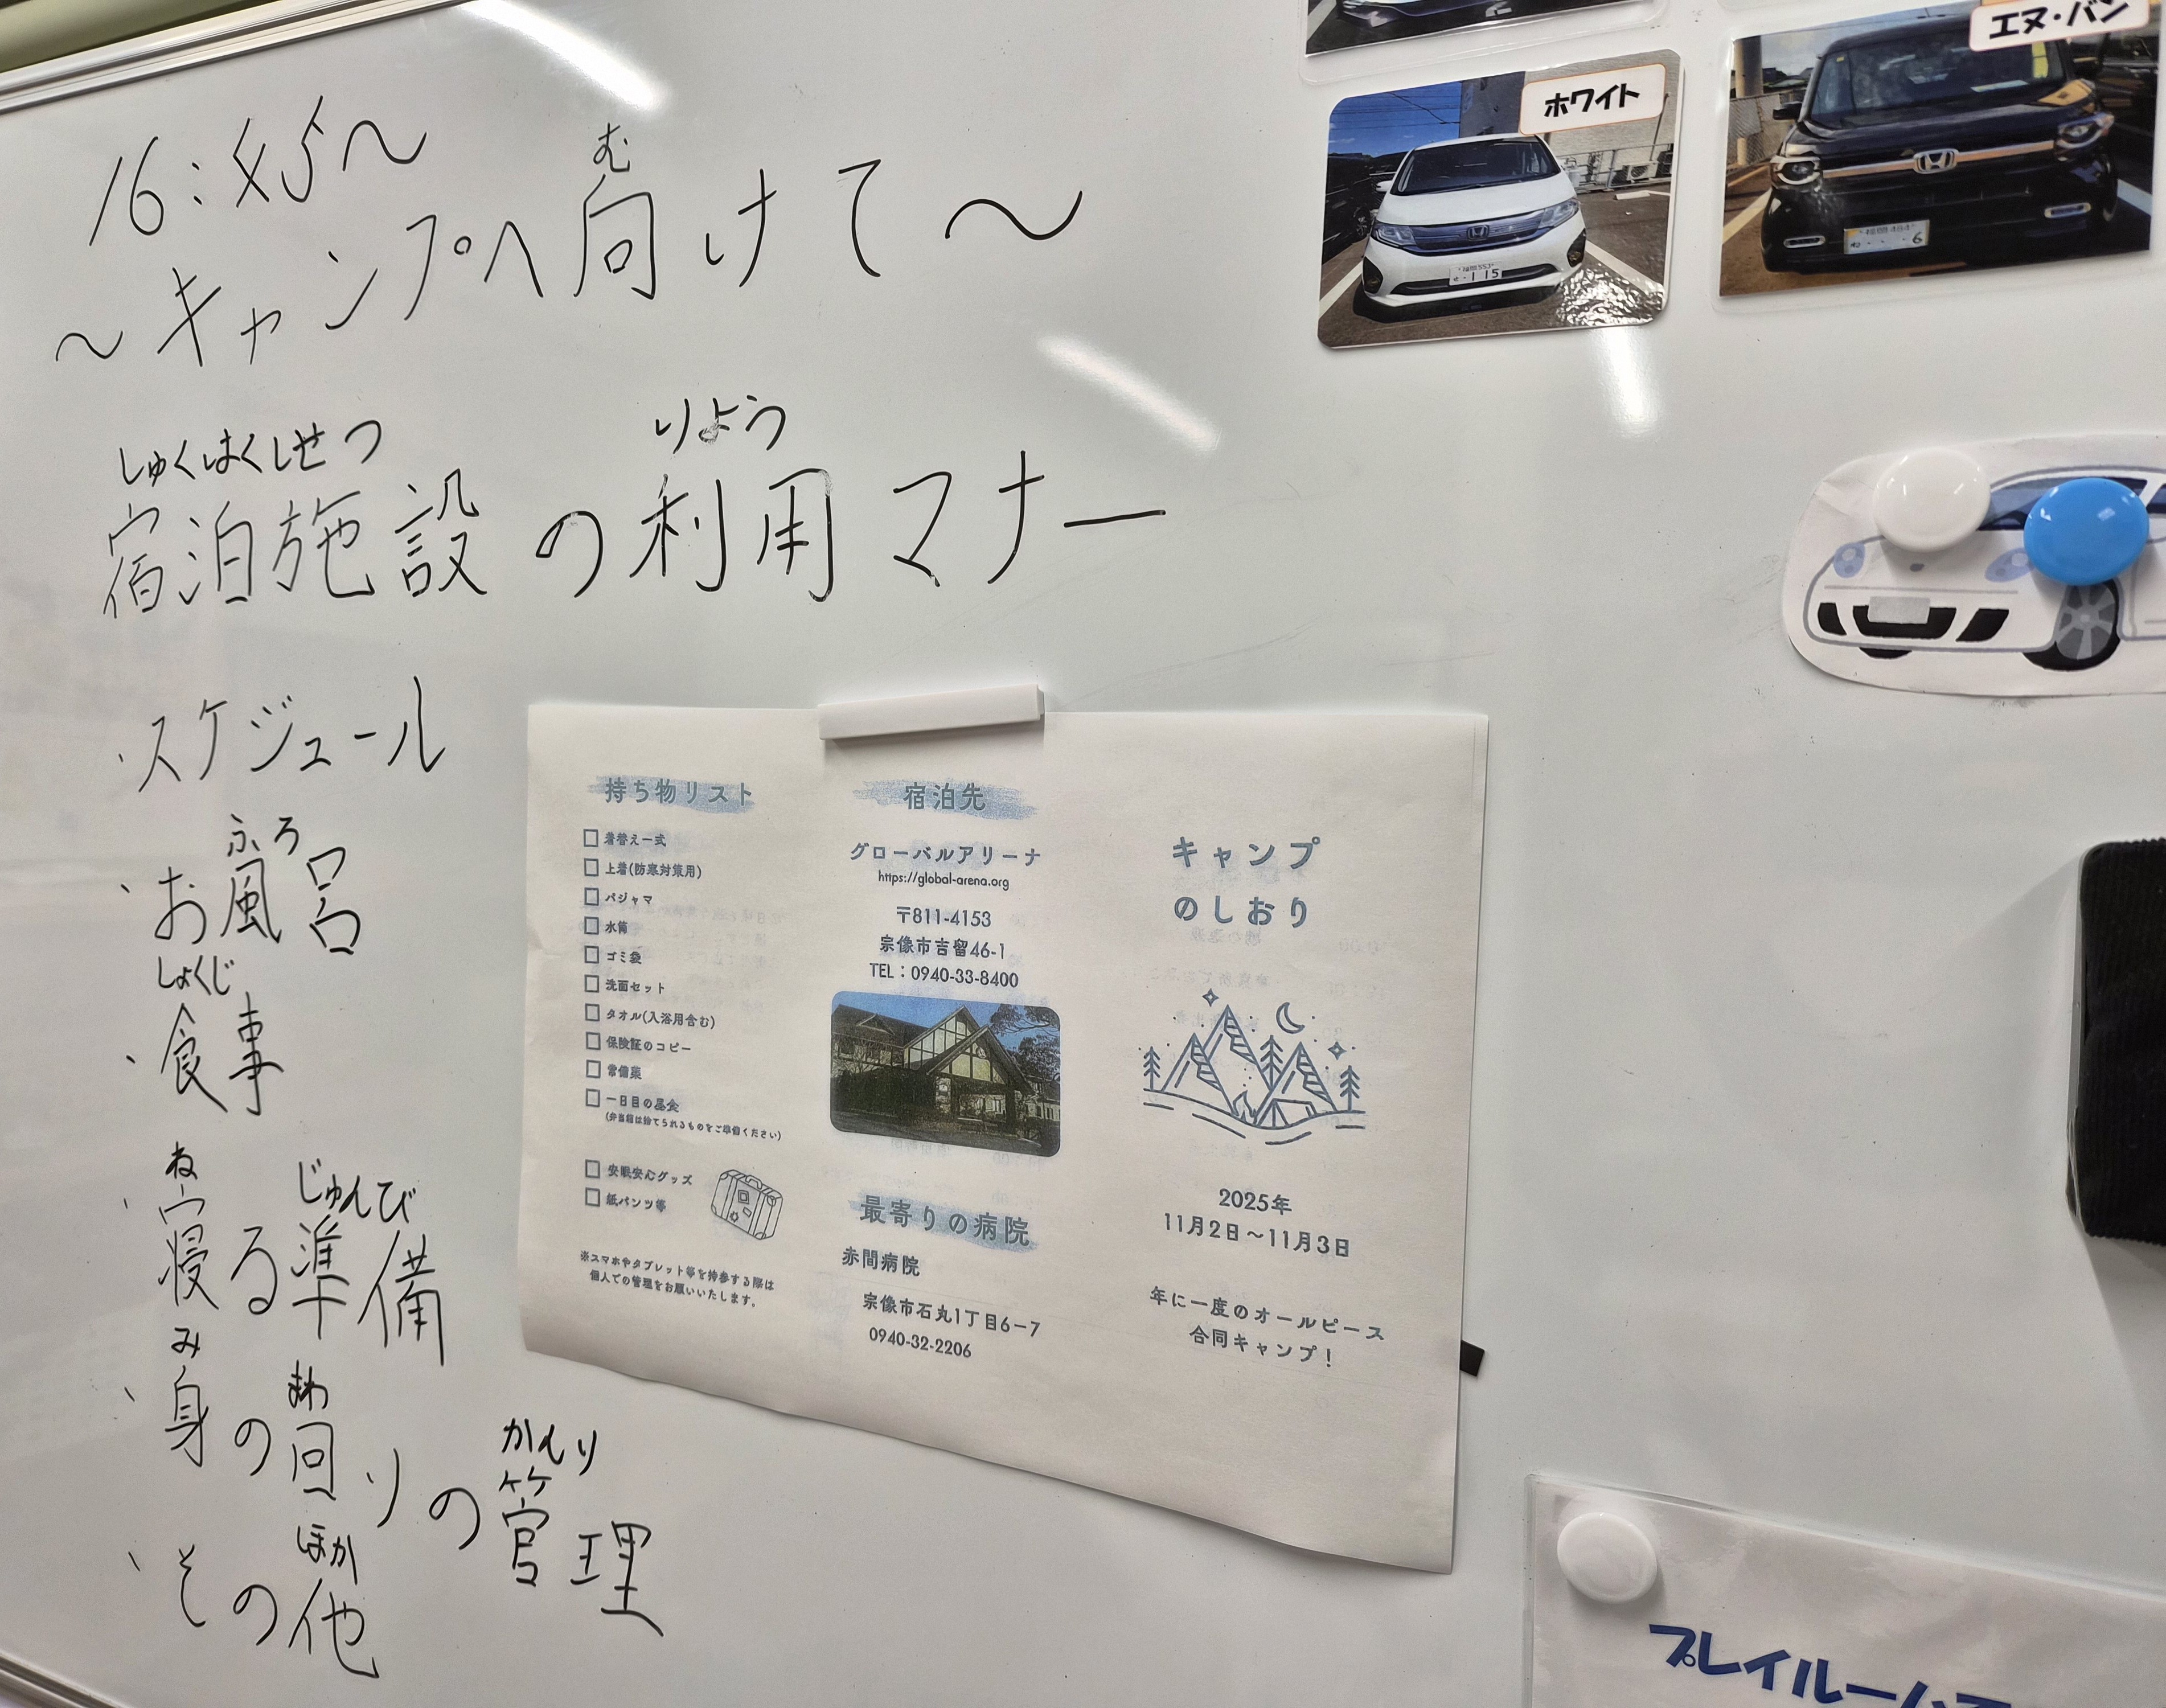 16:45〜
〜キャンプへ向けて〜
む
しゅくはくしせつ
りょう
宿泊施設の利用マナー
・スケジュール
ふろ
・お風呂
しょくじ
・食事
ね じゅんび
・寝る準備
み まわ かんり
・身の回りの管理
ほか
・その他
持ち物リスト
着替え一式
上着(防寒対策用)
パジャマ
水筒
ゴミ袋
洗面セット
タオル(入浴用含む)
保険証のコピー
常備薬
一日目の昼食
(弁当箱は捨てられるものをご準備ください)
安眠安心グッズ
紙パンツ等
※スマホやタブレット等を持参する際は
個人での管理をお願いいたします。
宿泊先
グローバルアリーナ
https://global-arena.org
〒811-4153
宗像市吉留46-1
TEL：0940-33-8400
最寄りの病院
赤間病院
宗像市石丸1丁目6−7
0940-32-2206
キャンプ
のしおり
2025年
11月2日〜11月3日
年に一度のオールピース
合同キャンプ！
ホワイト
115
エヌ・バン
6
プレイルーム